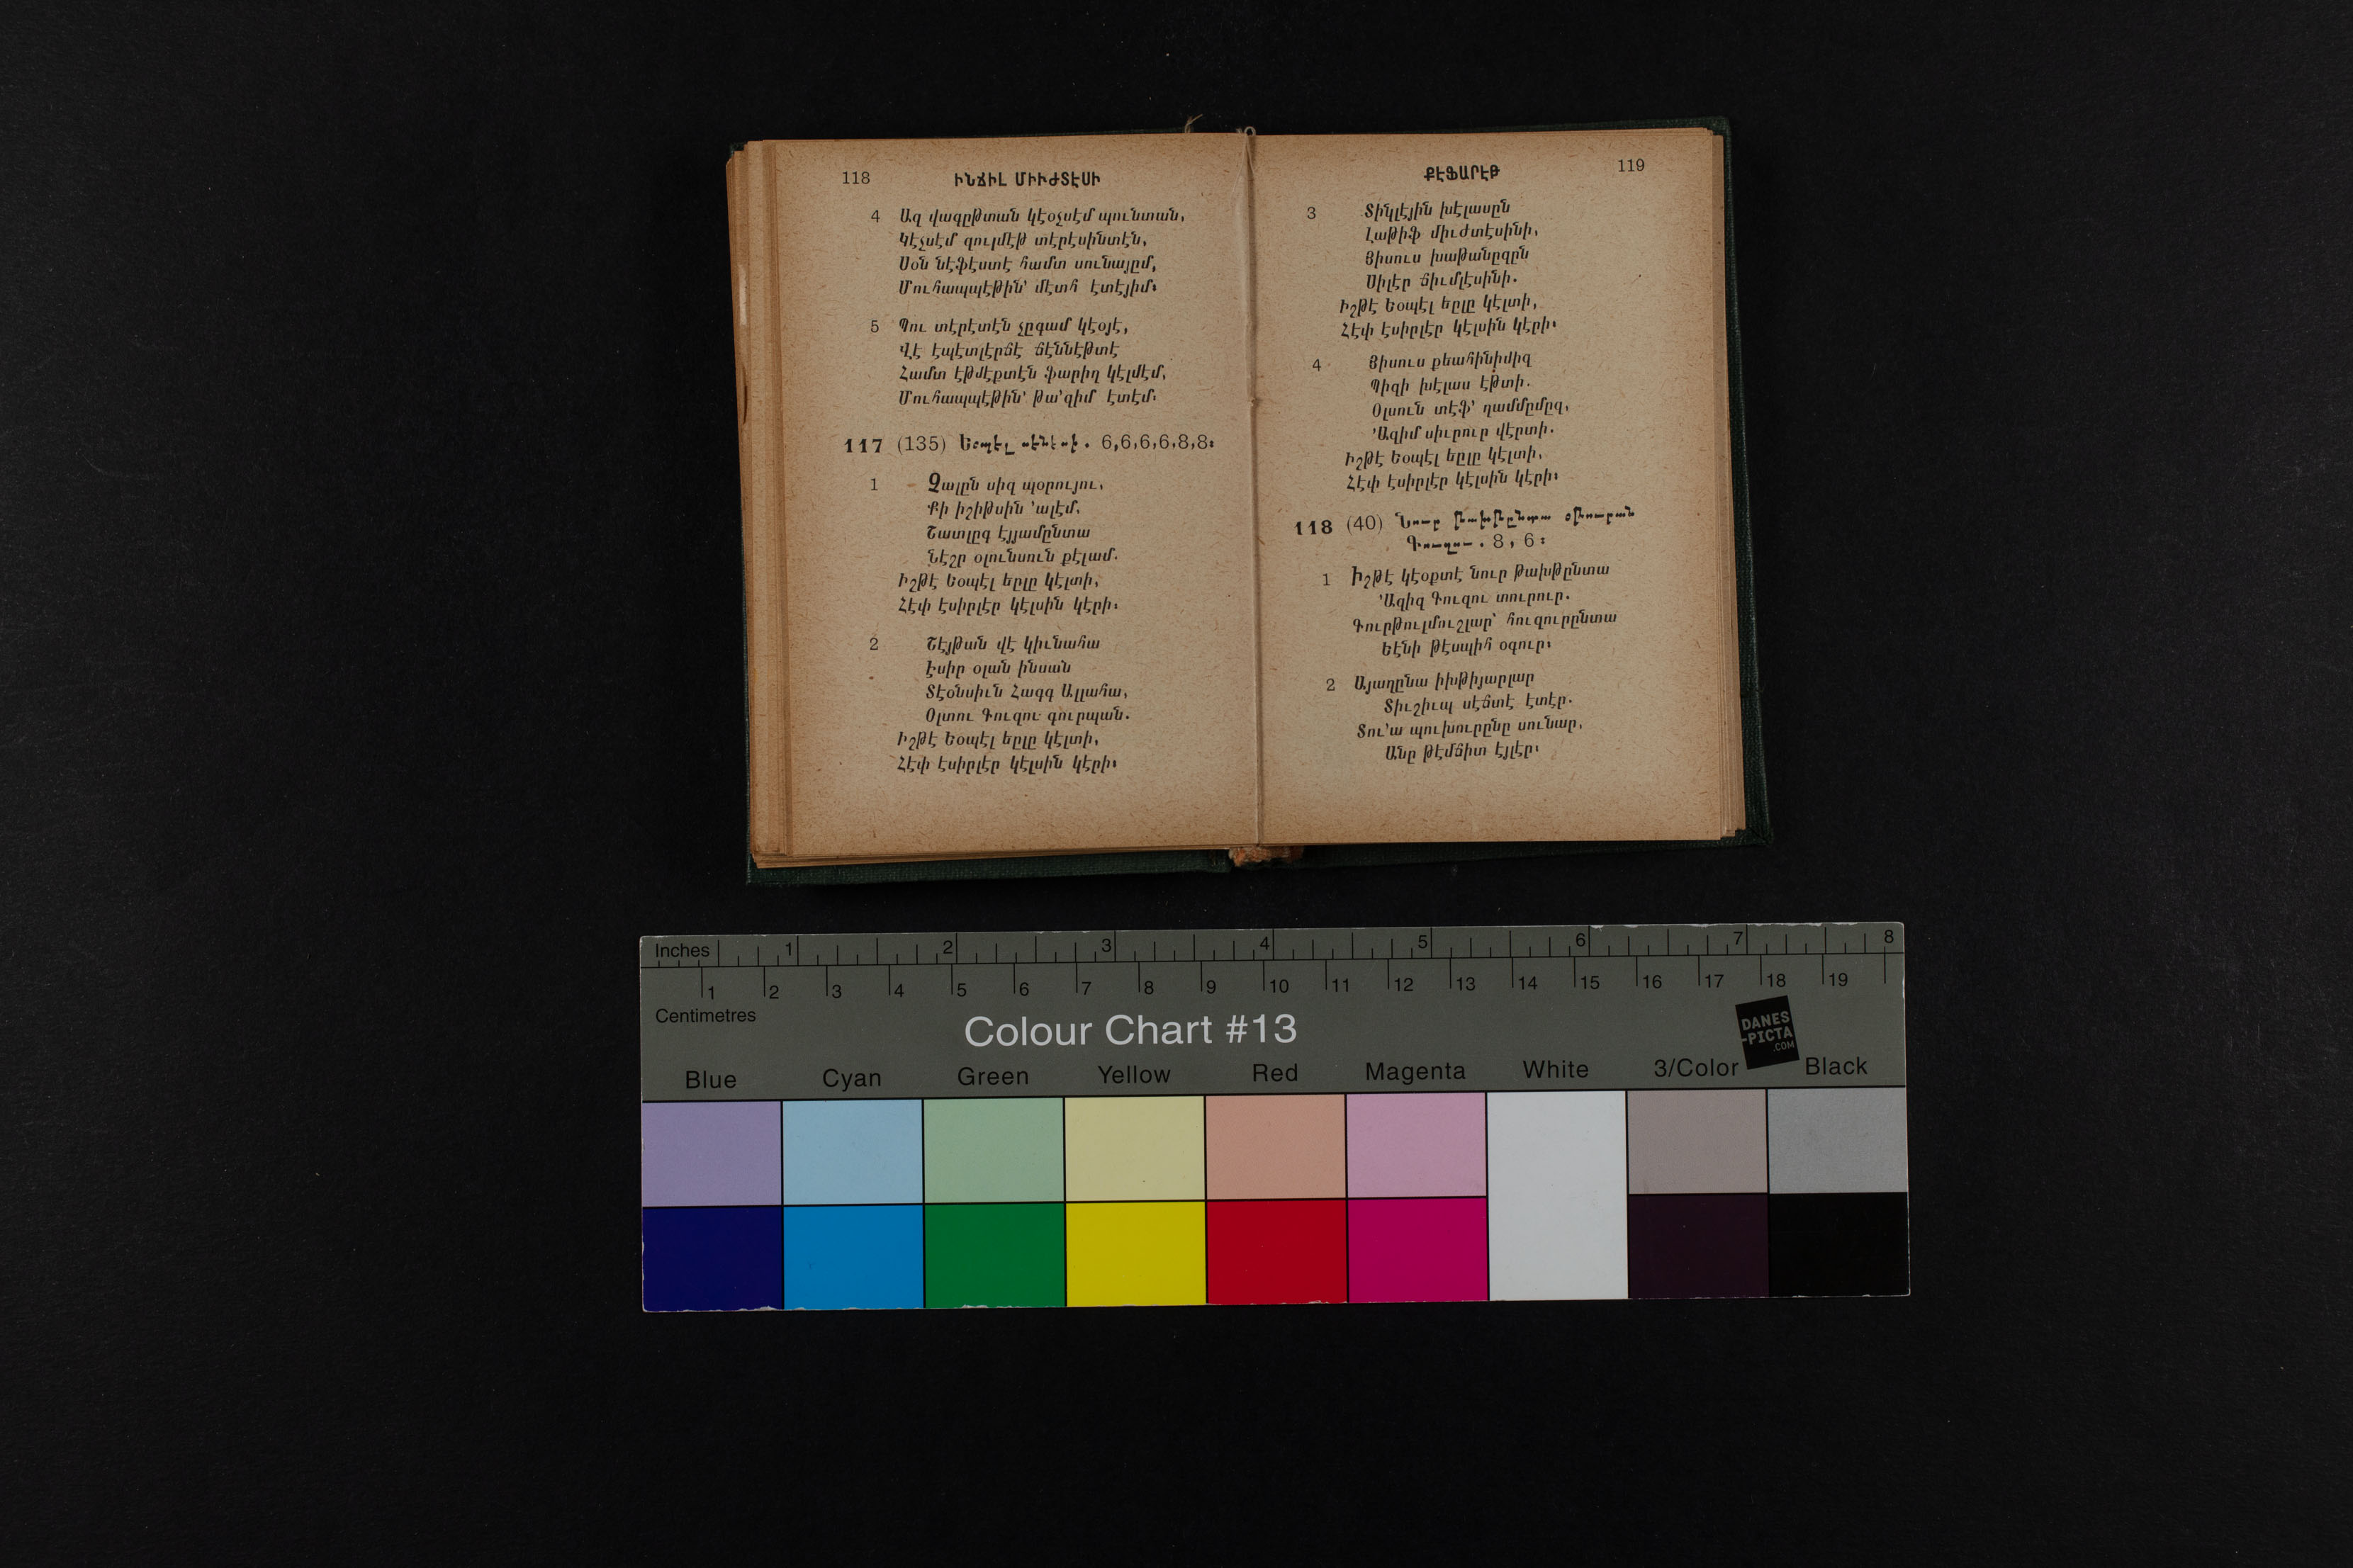 118
ԻՆՃԻԼ ՄԻՒԺՏԷՍԻ
4 Ազ վագըթտան կէօչսէմ պունտան,
Կէչսէմ զուլմէթ տէրէսինտէն,
Սօն նէֆէստէ համտ սունայըմ,
Մուհապպէթին՚ մէտհ էտէյիմ։
5 Պու տէրէտէն չըգամ կէօյէ,
Վէ էպէտլէրճէ ճէննէթտէ
Համտ էթմէքտէն ֆարիղ կէլմէմ,
Մուհապպէթին՚ թա՚զիմ էտէմ։
117 (135) Եօպէլ սէնէսի. 6,6,6,6,8,8։
1 Չալըն սիզ պօրույու,
Քի իշիթսին ՚ալէմ.
Շատլըգ էյյամընտա
Նէշր օլունսուն քէլամ.
Իշթէ Եօպէլ եըլը կէլտի,
Հէփ էսիրլէր կէլսին կէրի։
2 Շէյթան վէ կիւնահա
Էսիր օլան ինսան
Տէօնսիւն Հագգ Ալլահա,
Օլտու Գուզու գուրպան.
Իշթէ Եօպէլ եըլը կէլտի,
Հէփ էսիրլէր կէլսին կէրի։
ՔԷՖԱՐԷԹ
119
3 Տինլէյին խէլասըն
Լաթիֆ միւժտէսինի,
Յիսուս խաթանըզըն
Սիլէր ճիւմլէսինի.
Իշթէ Եօպէլ եըլը կէլտի,
Հէփ էսիրլէր կէլսին կէրի։
4 Յիսուս քեահինիմիզ
Պիզի խէլաս էթտի.
Օլսուն տէֆ՚ ղամմըմըզ,
՚Ազիմ սիւրուր վէրտի.
Իշթէ Եօպէլ եըլը կէլտի,
Հէփ էսիրլէր կէլսին կէրի։
118 (40) Նուր թախթընտա օթուրան
Գուզու. 8, 6։
1 Իշթէ կէօքտէ նուր թախթընտա
՚Ազիզ Գուզու տուրուր.
Գուրթուլմուշլար՝ հուզուրընտա
Եէնի թէսպիհ օգուր։
2 Այաղընա իխթիյարլար
Տիւշիւպ սէճտէ էտէր.
Տու՚ա պուխուրընը սունար,
Անը թէմճիտ էյլէր։
Inches 1 2 3 4 5 6 7 8
1 2 3 4 5 6 7 8 9 10 11 12 13 14 15 16 17 18 19
Centimetres
Colour Chart #13
DANES
-PICTA
.COM
Blue Cyan Green Yellow Red Magenta White 3/Color Black